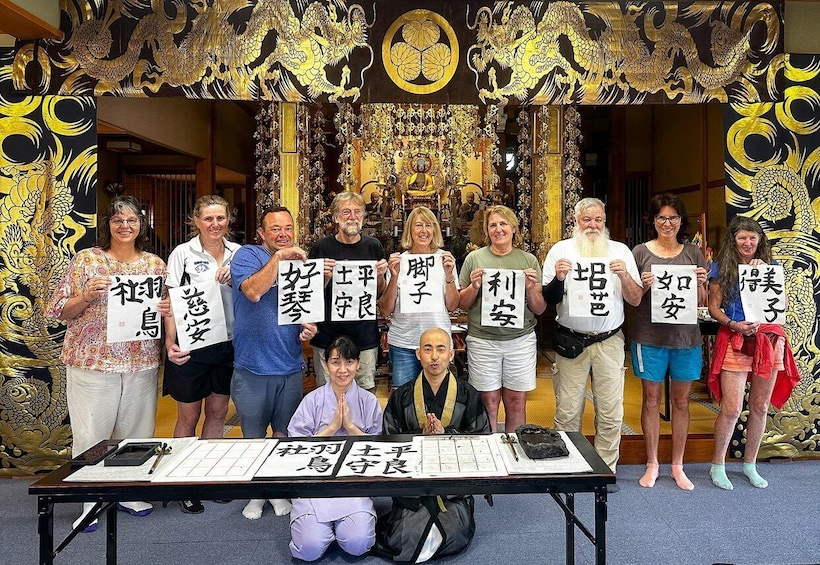 羽鳥
社
慈安
好琴
平良
土守
脚子
利安
呂芭
如安
美子
得
羽鳥
社
平良
土守